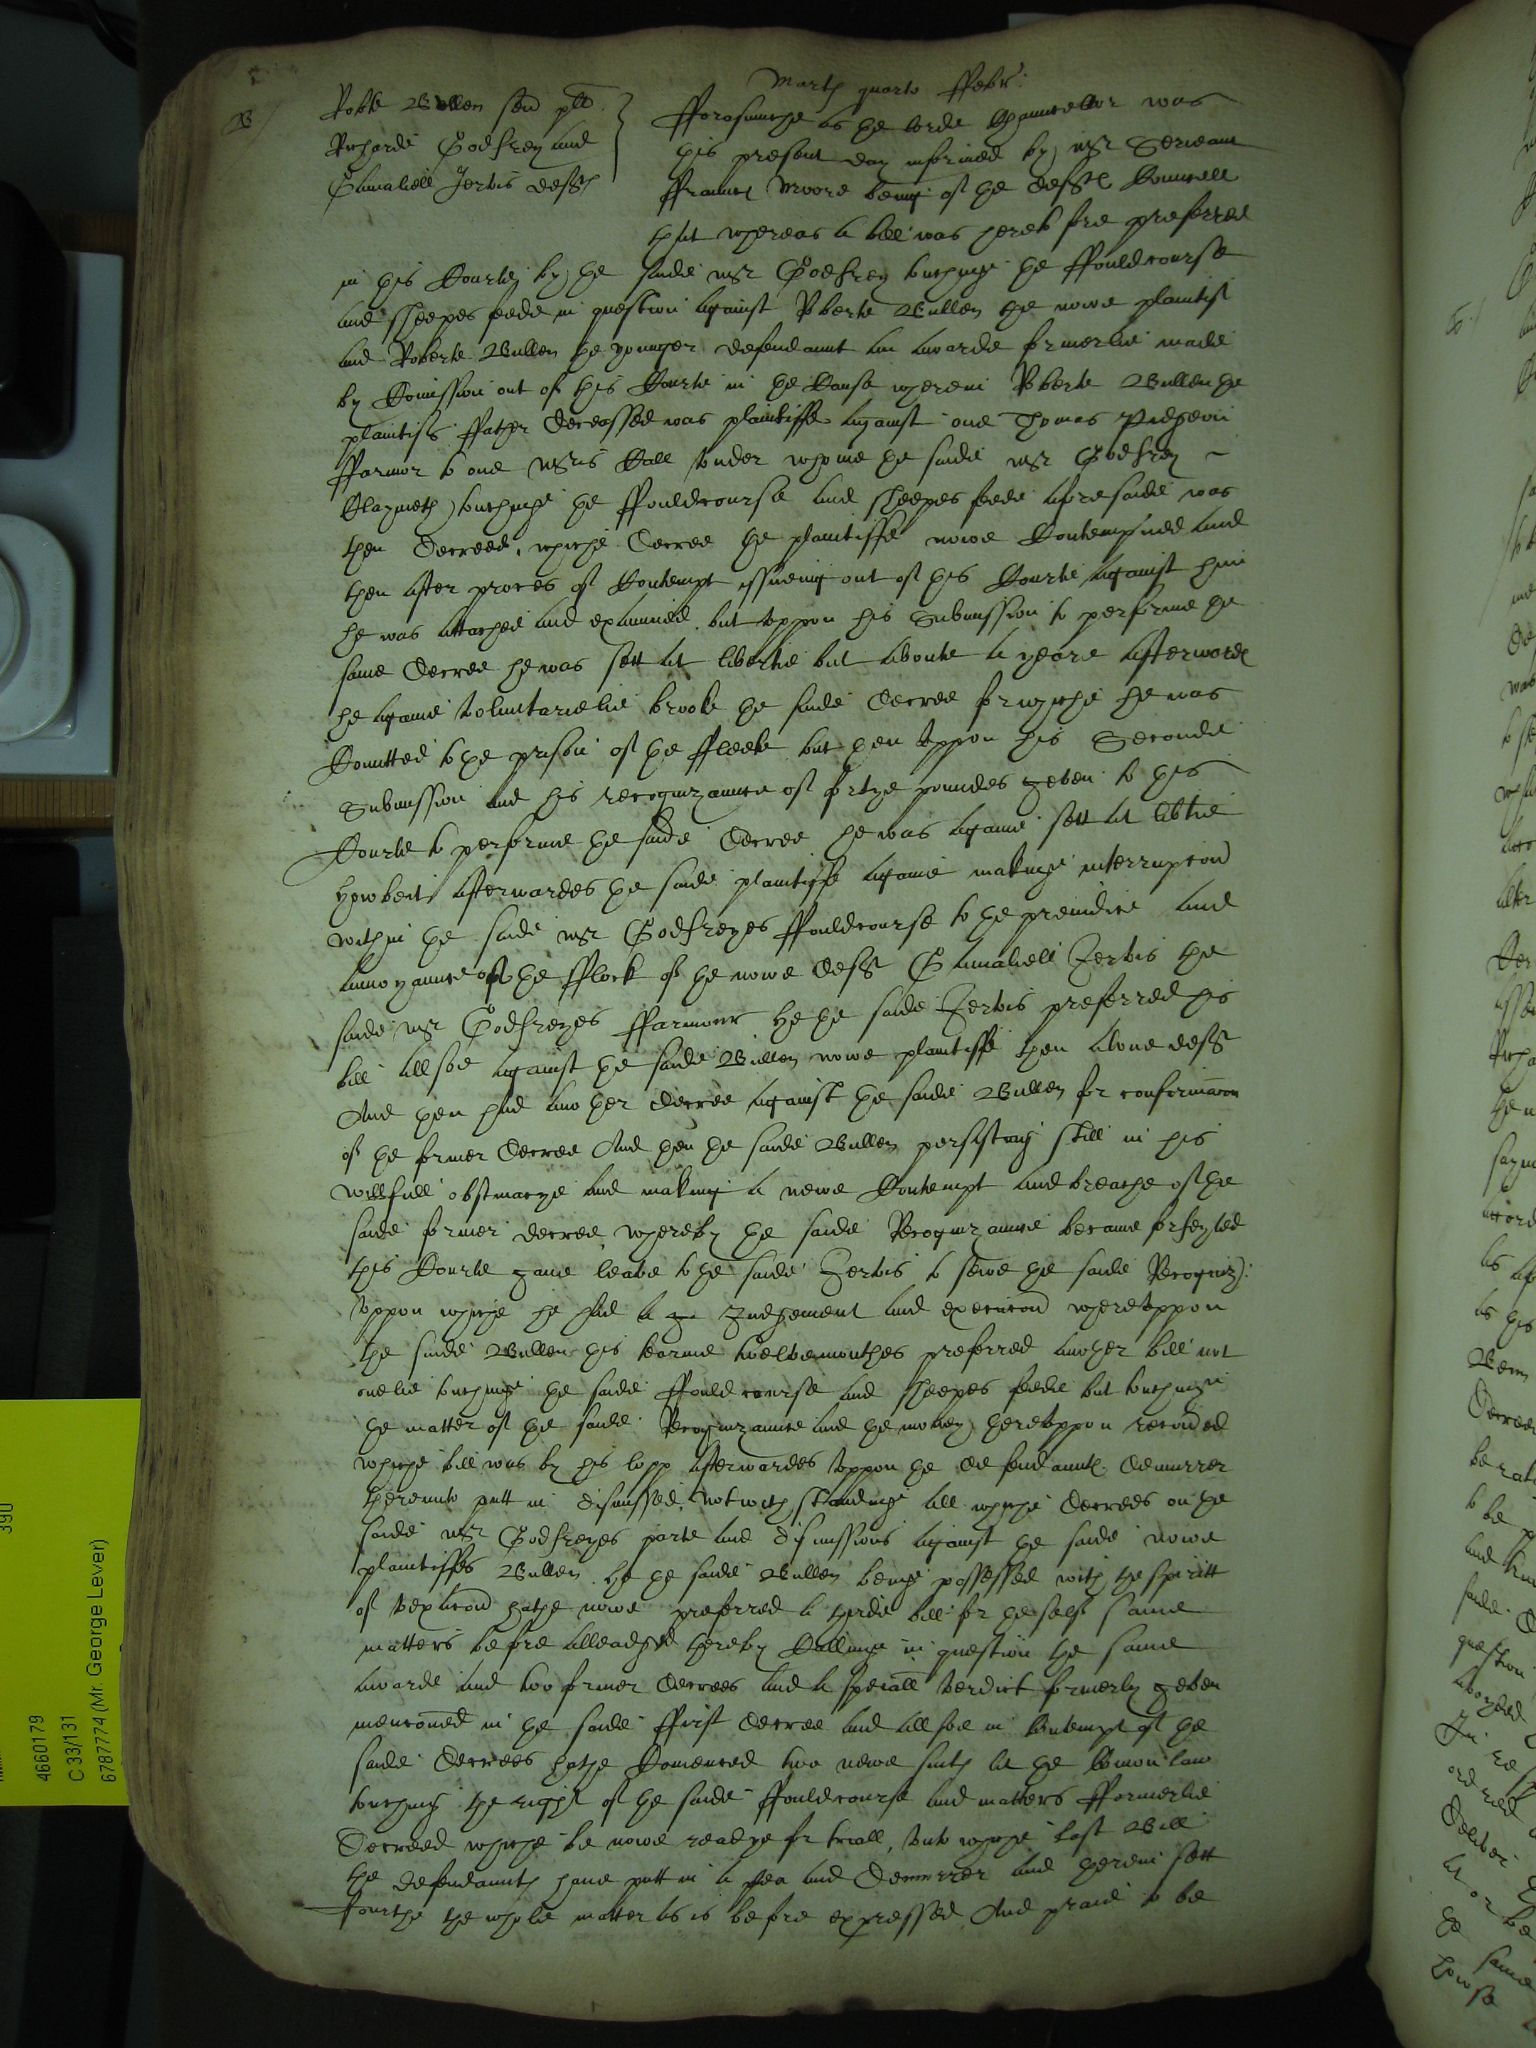 Martis quarto Febr:
B
Robte Bullen sen plt
Richarde Godfrey and
Gamaliell Jervis defts
Fforasmuche as the lorde Chauncellor was
this present day informed by mr Serieant
Ffrauncs Moore being of the defts Councell
that whereas a bill was heretofore preferred
in this Courte by the saide mr Godfrey touchinge the ffouldcourse
and sheepes feede in question against Roberte Bullen the nowe plaintif
and Roberte Bullen the younger defendaunt an awarde formerlie made
by Comission out of this Courte in the Cause wherein Roberte Bullen the
plaintifs ffather deceassed was plaintiffe against one Thomas Pidgeon
ffarmor to one Mris Call under whome the saide mr Godfrey
Claymeth touchinge the ffouldcourse and sheepes feede aforesaide was
then decreed, whiche decree the plaintiffe nowe Contempned and
then after proces of Contempt issueing out of this Courte against him
he was attached and examined but uppon his Submission to performe the
same decree he was sett at libertie but aboute a yeare afterwards
he againe voluntarielie brooke the saide decree for whiche he was
Comitted to the prison of the ffleete but then uppon his Seconde
Submission and his recognizaunce of fortye poundes geven to this
Courte to performe the saide decree he was againe sett at libtie
howbeit afterwardes the saide plaintiffe againe makinge interrupcion
within the saide mr Godfreyes ffouldcourse to the preiudice and
annoyaunce of the fflock of the nowe deft Gamaliell Jervis the
saide mr Godfreyes ffarmour he the saide Jervis preferred his
bill allsoe against the saide Bullen nowe plaintiffe then alone deft
And then had another decree against the saide Bullen for confirmacon
of the former decree And then the saide Bullen persisting still in his
willfull obstinacye and making a newe Contempt and breache of the
saide former decree whereby the saide Recognizaunce became forfeyted
this Courte gave leave to the saide Jervis to sewe the saide Recogniz:
uppon whiche he had a Judgement and execucion whereuppon
the saide Bullen this tearme twelvemonthes preferred another bill not
onelie touchinge the saide ffouldcourse and sheepes feede but touchinge
the matter of the saide Recognizaunce and the money thereuppon recovered
whiche bill was by his lopp afterwardes uppon the defendaunts demurrer
thereunto putt in dismissed, Notwithstandinge all whiche decrees on the
saide mr Godfreyes parte and dismissions against the saide nowe
plaintiffes Bullen he the saide Bullen beinge possessed with the spiritt
of vexacion hathe nowe preferred a thirde bill for the self same
matters before alleadged thereby Callinge in question the same
awarde and two former decrees and a speciall verdict formerly geven
mencioned in the saide ffirst decree and allsoe in Contempt of the
saide decrees hathe Comenced two newe suits at the Comon law
touching the right of the saide ffouldcourse and matters fformerlie
decreed whiche be nowe readye for triall, unto whiche last Bill
the defendaunts have putt in a plea and demurrer and therein sett
fourthe the whole matter as is before expressed And praied to be
4660179
C 33/131
6787774 (Mr. George Lever)
390